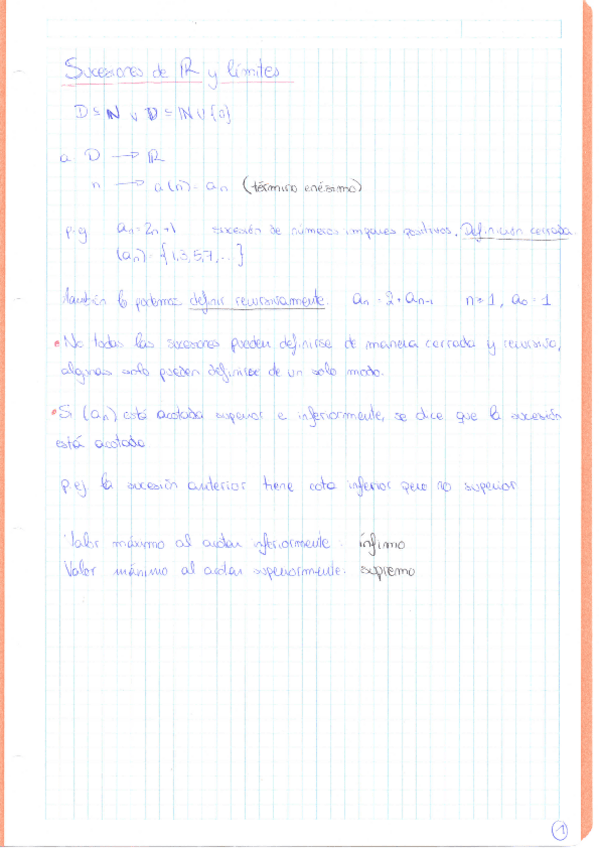 Sucesiones de ℝ y límites
D ⊆ ℕ ∨ D ⊆ ℕ ∪ {0}
a D → ℝ
n → a(n) = aₙ (término enésimo)
p.ej aₙ = 2n+1 sucesión de números impares positivos. Definición cerrada
(aₙ) = {1,3,5,7,...}
También lo podemos definir recursivamente: aₙ = 2 + aₙ₋₁ n ≥ 1, a₀ = 1
• No todas las sucesiones pueden definirse de manera cerrada y recursiva,
algunas solo pueden definirse de un solo modo.
• Si (aₙ) está acotada superior e inferiormente, se dice que la sucesión
está acotada
p.ej la sucesión anterior tiene cota inferior pero no superior
Valor máximo al acotar inferiormente: ínfimo
Valor mánimo al acotar superiormente: supremo
1